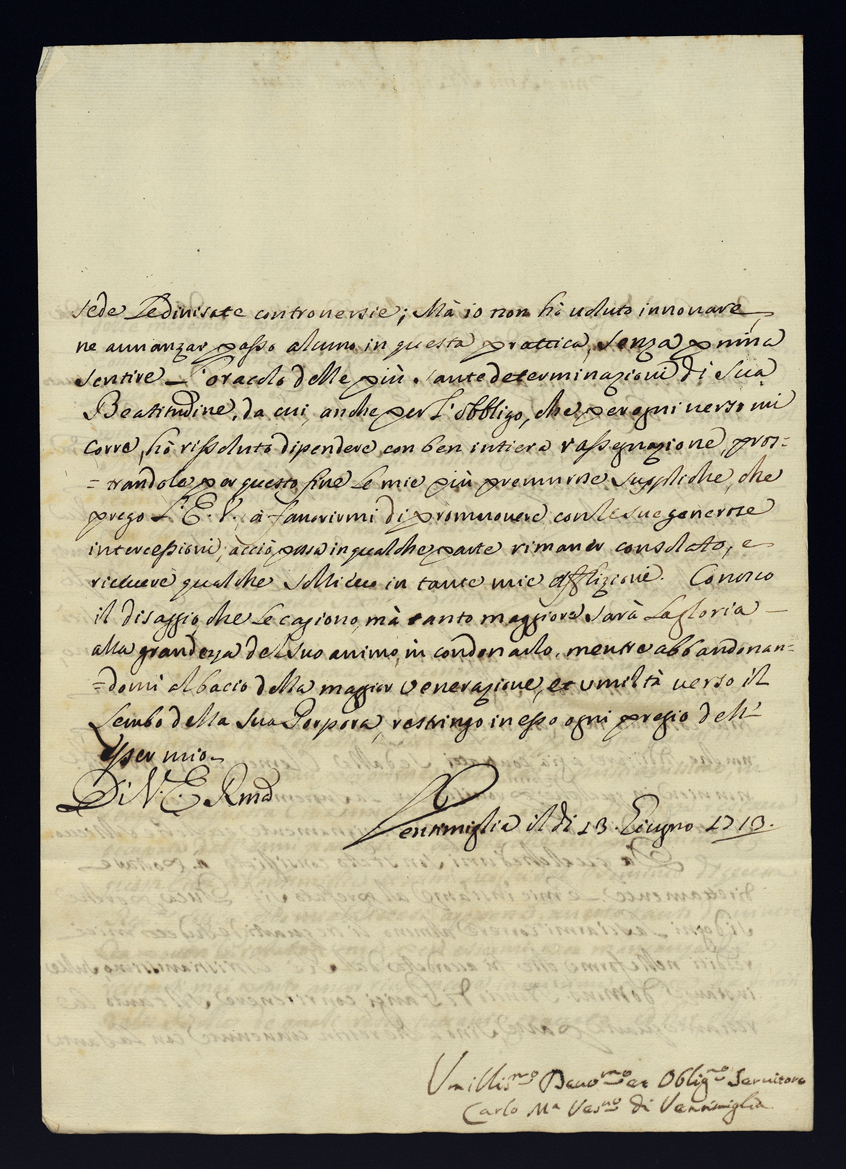 sede le divisate controversie; Mà io non hò voluto innovare,
ne avvanzar passo alcuno in questa prattica, senza p̃ mina
sentire l'oracolo delle più sante determinazioni di Sua
Beatitudine, da cui, anche per l'obbligo, che per ogni verso mi
corre, hò rissoluto dipendere con ben intiera rassegnazione, pros=
=trandole per questo fine le mie più premurose suppliche, che
prego L'E.V. à favorirmi di promuovere con le sue generose
intercessioni, acciò possa in qualche parte rimaner consolato, e
ricevere qualche sollievo in tante mie afflizioni. Conosco
il disaggio che le cagiono, mà tanto maggiore sarà la gloria
alla grandezza del suo animo, in condonarlo. mentre abbandonan=
=domi al bacio della maggior venerazione, et umiltà verso il
Lembo della Sua Porpora, restringo in esso ogni pregio dell'
esser mio
Di V. E. Rma
Ventimiglia il dì 13. Giugno 1713.
Umiliss.mo Devo.mo et Oblig.mo Servitore
Carlo M.a Ves.vo di Ventimiglia